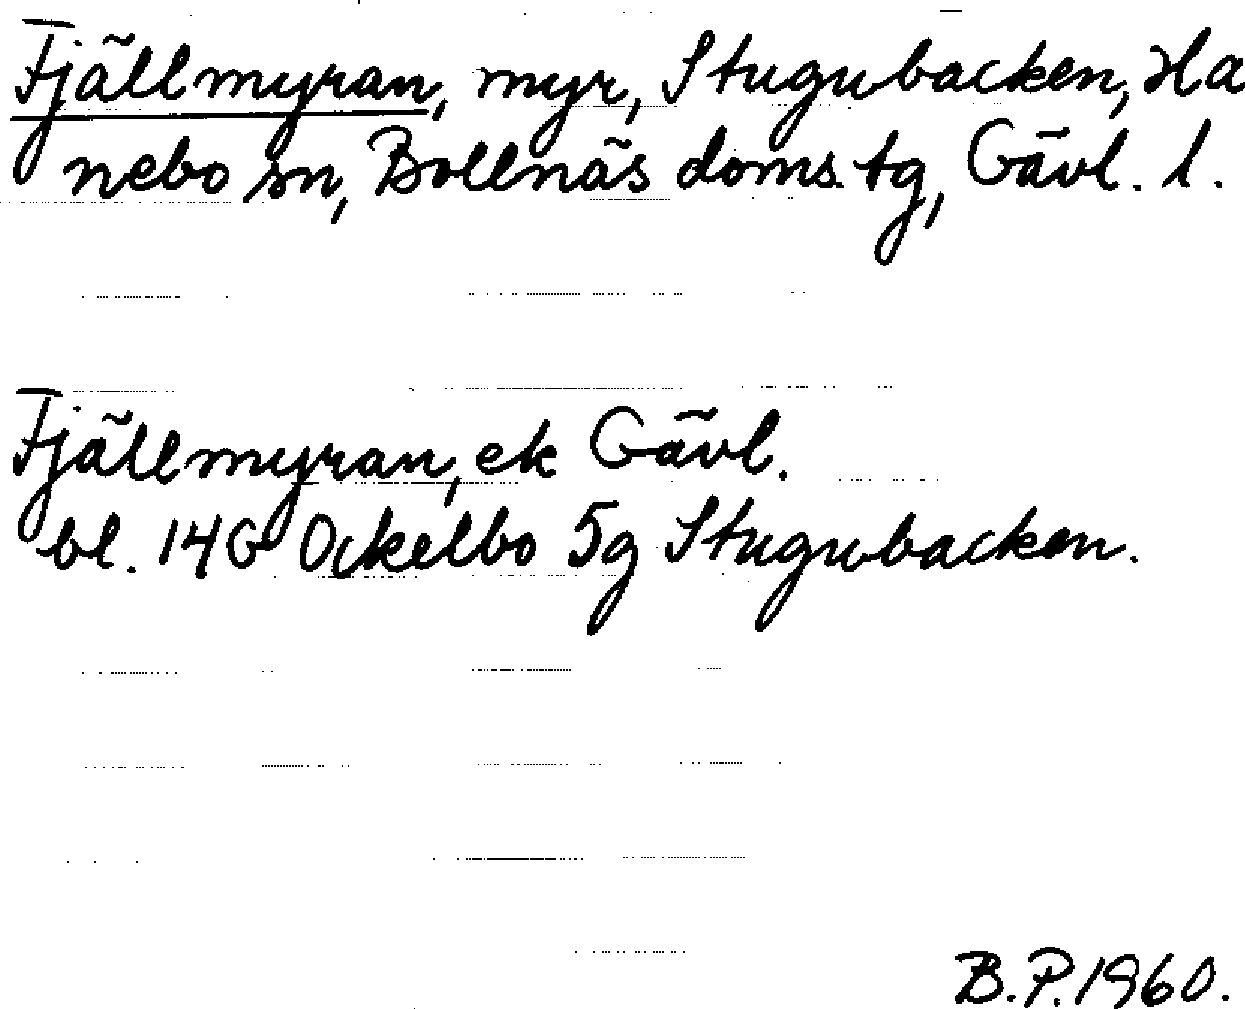 Fjällmyran, myr, Stugubacken, Ha
nebo sn, Bollnäs doms. tg, Gävl. l.
Fjällmyran, ek Gävl.
bl. 14G Ockelbo 5g Stugubacken.
B.P. 1960.